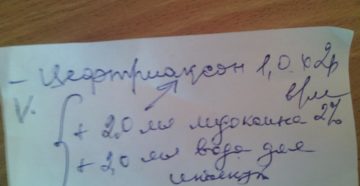 - Цефтриаксон 1,0 х 2р
в/м
V. + 2,0 мл лидокаина 2%
+ 2,0 мл вода для
инъекц